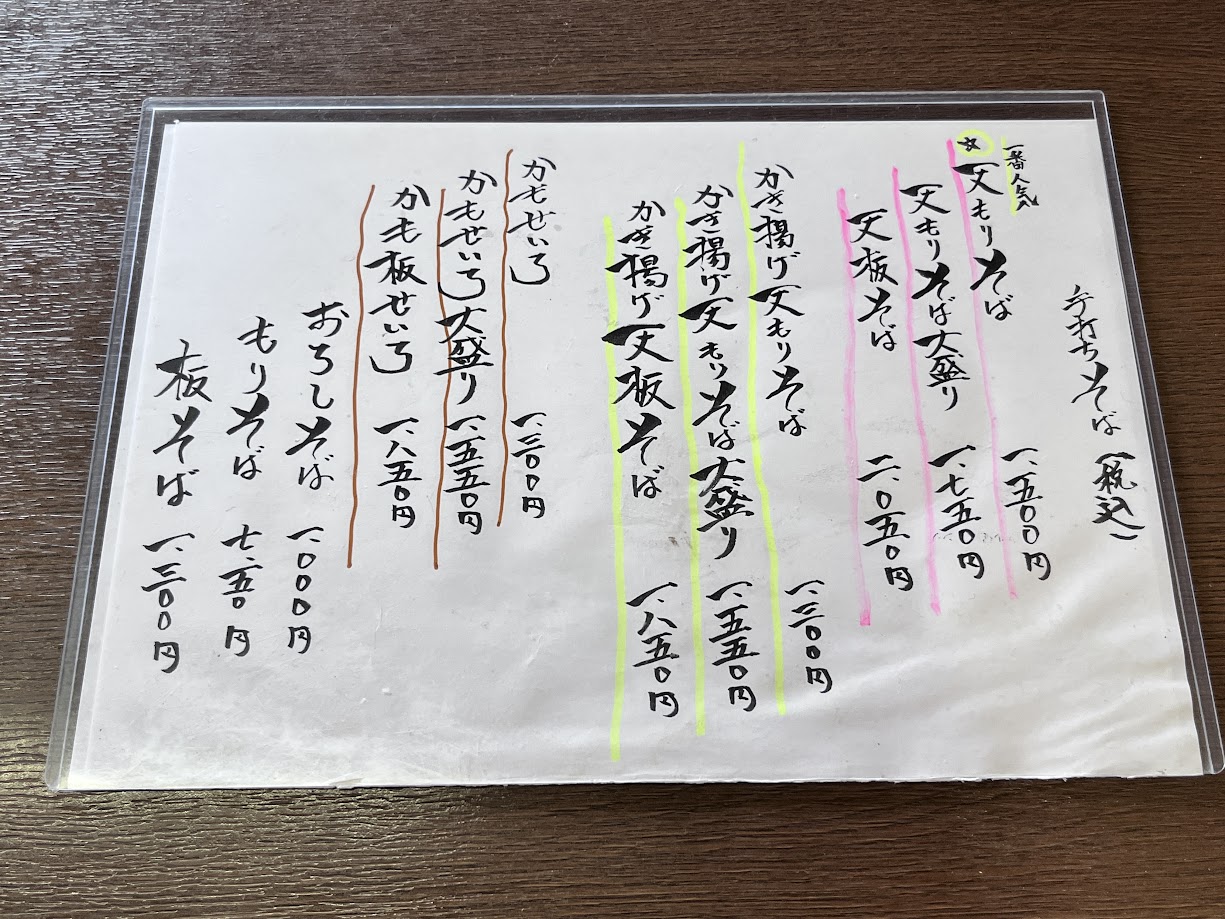 手打ちそば(税込)
一番人気
☆天もりそば 一、五〇〇円
天もりそば大盛り 一、七五〇円
天板そば 二、〇五〇円
かき揚げ天もりそば 一、三〇〇円
かき揚げ天もりそば大盛り 一、五五〇円
かき揚げ天板そば 一、八五〇円
かもせいろ 一、三〇〇円
かもせいろ大盛り 一、五五〇円
かも板せいろ 一、八五〇円
おろしそば 一、〇〇〇円
もりそば 七、五〇円
板そば 一、三〇〇円